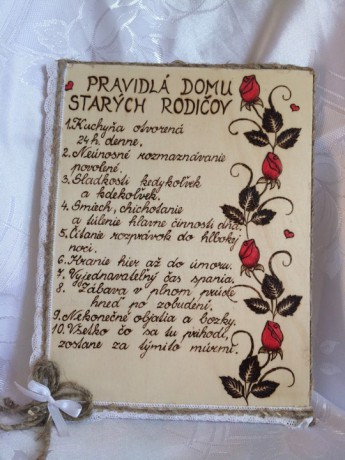 PRAVIDLÁ DOMU
STARÝCH RODIČOV
1. Kuchyňa otvorená
24 h. denne.
2. Neúnosné rozmaznávanie
povolené.
3. Sladkosti kedykoľvek
a kdekoľvek.
4. Smiech, chichotanie
a túlenie hlavne činnosti dňa.
5. Čítanie rozprávok do hlbokej
noci.
6. Hranie hier až do úmoru.
7. Vyjednávateľný čas spania.
8. Zábava v plnom prúde
hneď po zobudení.
9. Nekonečné objatia a bozky.
10. Všetko čo sa tu prihodí,
zostane za týmito múrmi.